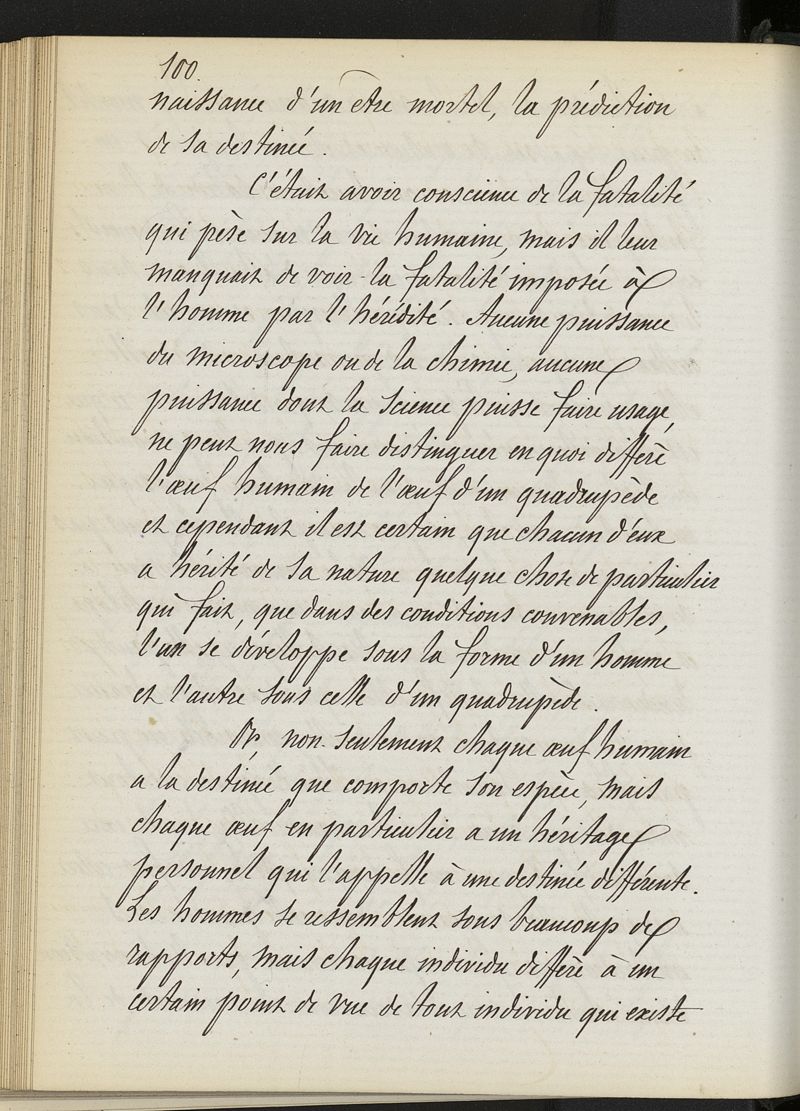 100.
naissance d'un être mortel, la prédiction
de sa destinée.
C'était avoir conscience de la fatalité
qui pèse sur la vie humaine, mais il leur
manquait de voir la fatalité imposée à
l'homme par l'hérédité. Aucune puissance
du microscope ou de la chimie, aucune
puissance dont la science puisse faire usage,
ne peut nous faire distinguer en quoi diffère
l'œuf humain de l'œuf d'un quadrupède
et cependant il est certain que chacun d'eux
a hérité de sa nature quelque chose de particulier
qui fait, que dans des conditions convenables,
l'un se développe sous la forme d'un homme
et l'autre sous celle d'un quadrupède.
Or, non seulement chaque œuf humain
a la destinée que comporte son espèce, mais
chaque œuf en particulier a un héritage
personnel qui l'appelle à une destinée différente.
Les hommes se ressemblent sous beaucoup de
rapports, mais chaque individu diffère à un
certain point de vue de tout individu qui existe